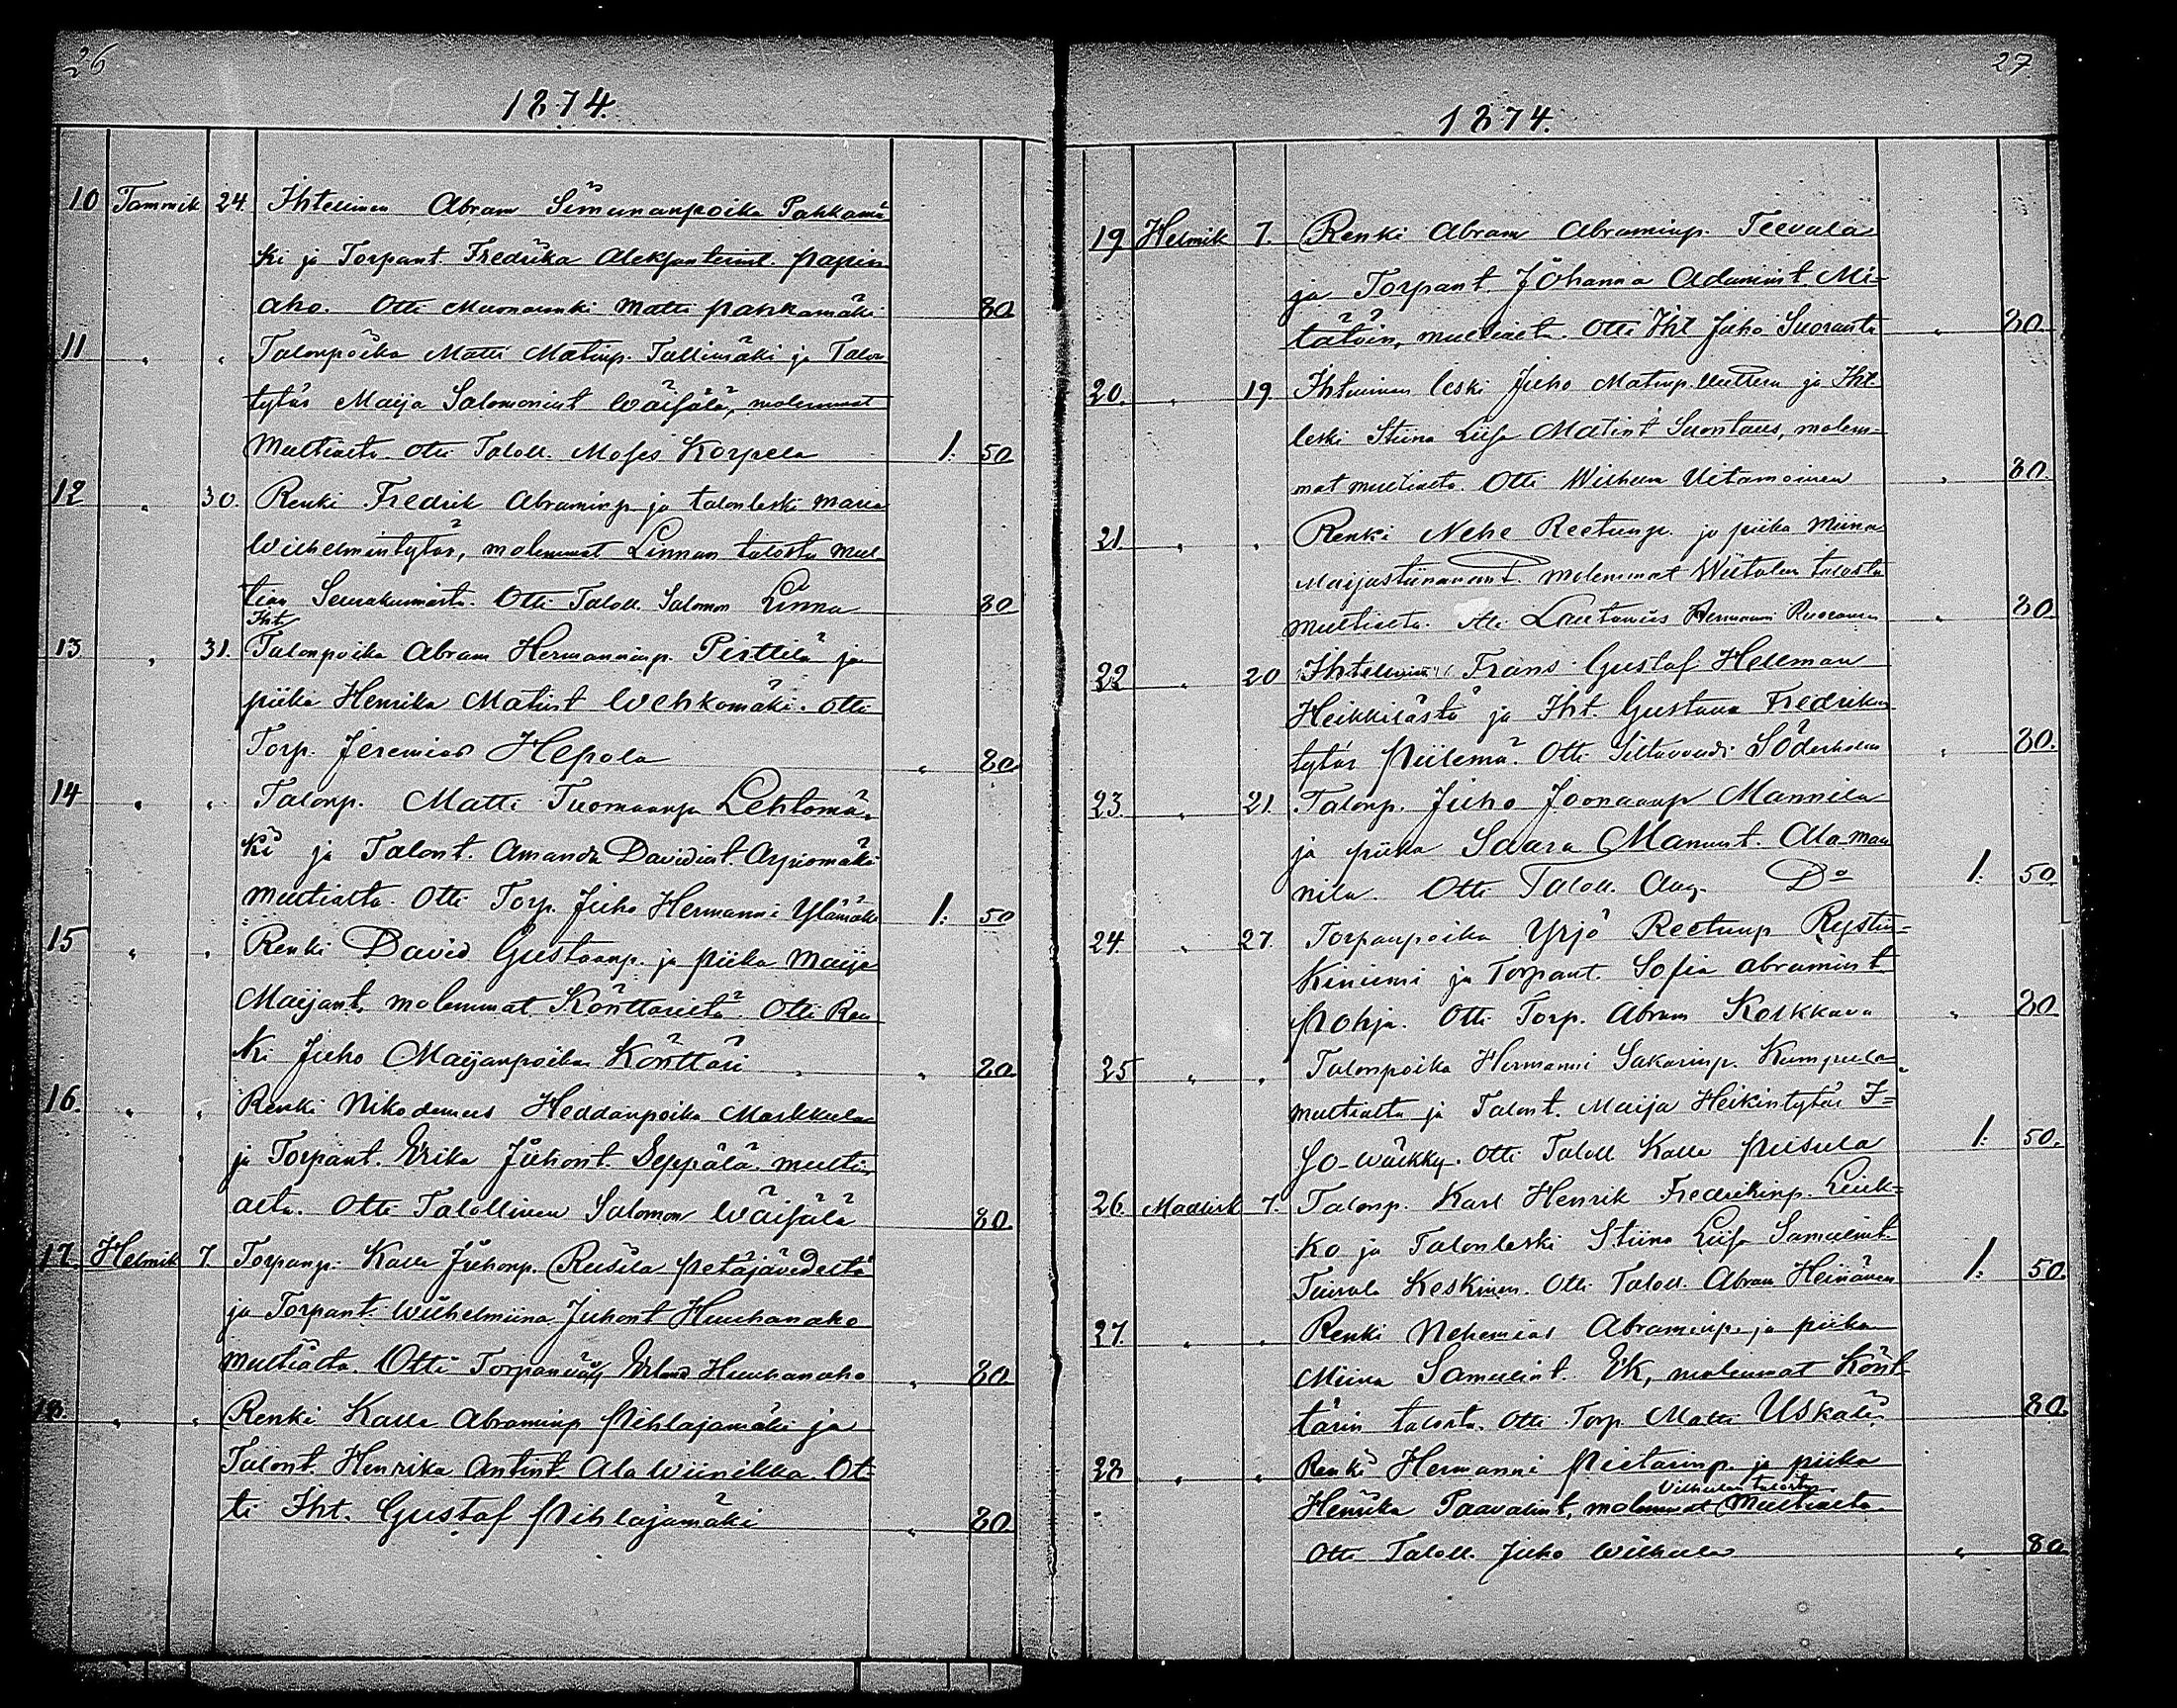 26
1874.
10 Tammik 24. Ihtellinen Abram Simunanpoika Pahkamä
ki ja Torpant. Fredrika Aleksanterint. Papin
aho. Otti Muonarenki Matti Pahkamäki 80
11 " " Talonpoika Matti Matinp. Tallimäki ja Talon
tytär Maija Salomonint Wäisälä, molemmat
Multialta Otti Taloll. Moses Korpela 1: 50
12 " 30. Renki Fredrik Abraminp. ja talonleski Maria
Wilhelmintytär, molemmat Linnan talosta Mul
tian Seurakunnasta. Otti Taloll. Salomon Linna 80
Iht
13 " 31. Talonpoika Abram Hermanninp. Pirttilä ja
piika Henrika Matint Wehkomäki. Otti
Torp. Jeremias Hepola " 80.
14 " " Talonp. Matti Tuomaanp Lehtomä-
ki ja Talont. Amanda Davidint. Arpiomäki
Multialta. Otti Torp. Juho Hermanni Ylämäki 1: 50
15 " " Renki David Gustaanp. ja piika Maija
Maijant, molemmat Könttäristä. Otti Ren
ki Juho Maijanpoika Könttäri " 80.
16. " " Renki Nikodemus Heddanpoika Markkula
ja Torpant. Erika Juhont. Seppälä Multi-
alta. Otti Talollinen Salomon Wäisälä 80.
17. Helmik 7 Torpanp. Kalle Juhonp. Ruisila Petäjävedeltä
ja Torpant. Wilhelmiina Juhont Huuhanaho
Multialta. Otti Torpanväy Erland Huuhanaho " 80
18. " " Renki Kalle Abraminp Pihlajamäki ja
Talont. Henrika Antint Ala Wiinikka. Ot-
ti Iht. Gustaf Pihlajamäki " 80
27
1874.
19 Helmik 7. Renki Abram Abraminp. Teevala
ja Torpant. Johanna Adamint Mi-
tätöin, Multialta. Otti Iht Juho Suoranta " 80
20. " 19 Ihtellinen leski Juho Matinp. ja Iht.
leski Stiina Liisa Matint Suontaus, molem-
mat Multialta. Otti Wilhelm Uitamoinen " 80.
21. " " Renki Nehe Reetunp. ja piika Miina
Maijastiinanant. molemmat Wiitalan talosta
Multialta. Otti Lautamies Hermanni Ruoranen " 80.
22 " 20 Ihtellinen Frans Gustaf Hellman
Heikkilästä ja Iht. Gustava Fredrikin
tytär Piilemä. Otti Siltavouti Söderholm " 80.
23. " 21. Talonp. Juho Joonaanp Mannila
ja piika Saara Manunt. Ala-Man
nila. Otti Taloll. Aug. Do 1. 50
24. " 27. Torpanpoika Yrjö Reetunp Rystin-
kiniemi ja Torpant. Sofia Abramint
Pohja. Otti Torp. Abram Kolkkava " 80
25 " " Talonpoika Hermanni Sakarinp. Kumpula
Multialta ja Talont. Maija Heikintytär I-
so-Wäkky. Otti Taloll Kalle Piisula 1: 50.
26. Maalisk 7. Talonp. Karl Henrik Fredrikinp. Leik-
ko ja Talonleski Stiina Liisa Samulint.
Tuirala Keskinen. Otti Taloll. Abram Heinänen 1: 50.
27. " " Renki Nehemias Abraminp. ja piika
Miina Samulint. Ek, molemmat Könt-
tärin talosta. Otti Torp. Matti Uskali 80.
28 " " Renki Hermanni Pietarinp. ja piika
Wilhulan talosta
Henrika Paavalint, molemmat Multialta.
Otti Taloll. Juho Wilhula " 80